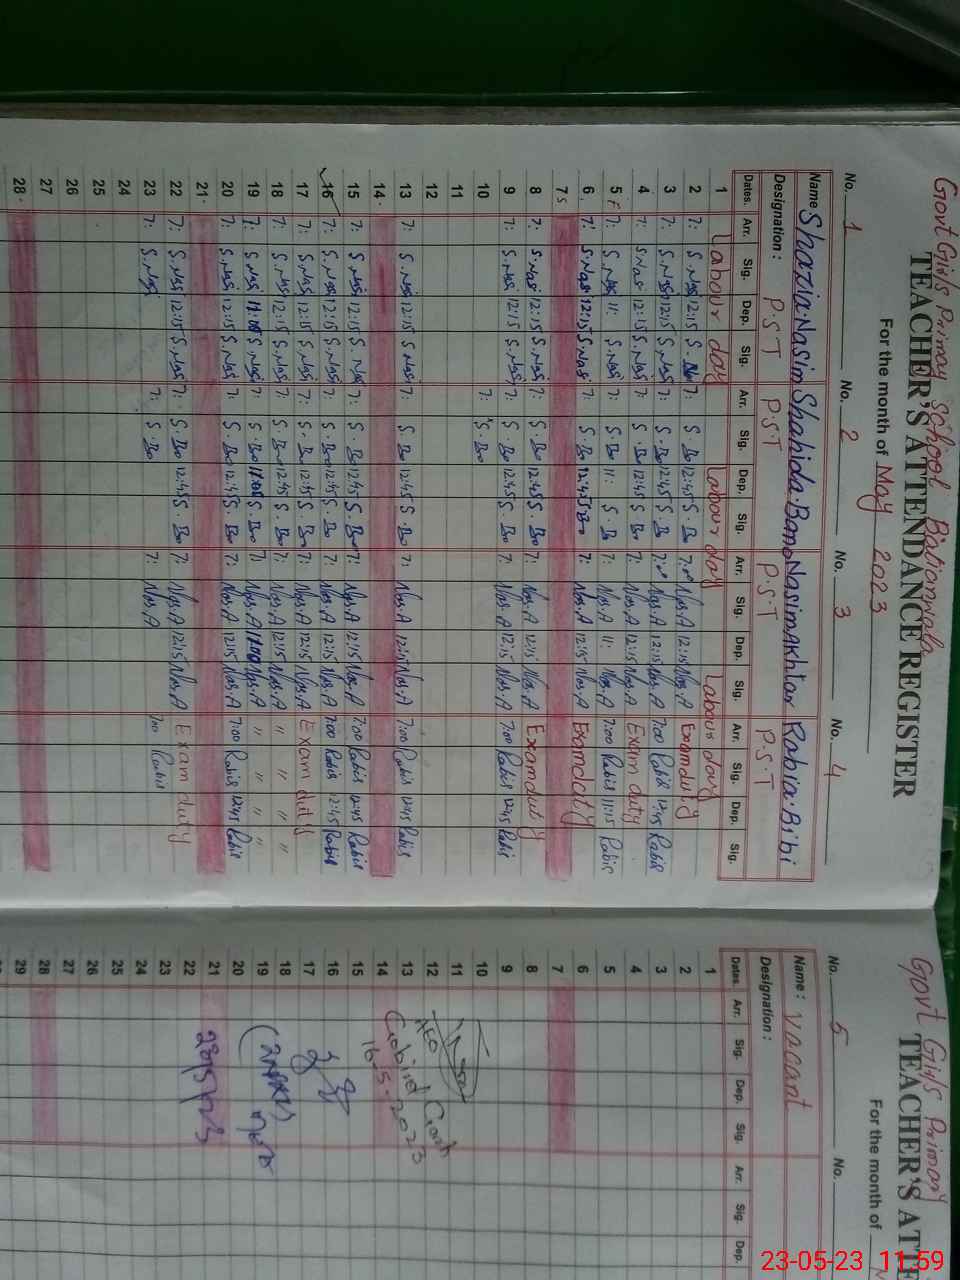 Govt Girls Primary School
TEACHER'S ATTENDANCE REGISTER
For the month of May 2023
No. 1 No. 2 No. 3 No. 4
Name Shazia.Nasim Shahida.Bano Nasim Akhtar Rabia.Bibi
Designation: P.S.T P.S.T P.S.T P.S.T
Dates. Arr. Sig. Dep. Sig. Arr. Sig. Dep. Sig. Arr. Sig. Dep. Sig. Arr. Sig. Dep. Sig.
1 Labour day Labour day Labour day
2 7: S.Nasi 12:15 S. 7: S.Bno 12:45 S.Bno 7:00 Nas.A 12:15 Nas.A Exam duty
3 7: S.Nasi 12:15 S.Nasi 7: S.Bno 12:45 S.Bno 7:00 Nas.A 12:15 Nas.A 7:00 Rabis 12:45 Rabis
4 7: S.Nasi 12:15 S.Nasi 7: S.Bno 12:45 S.Bno 7: Nas.A 12:15 Nas.A Exam duty
5 F 7: S.Nasi 11: S.Nasi 7: S.Bno 11: S.B 7: Nas.A 11: Nas.A 7:00 Rabis 11:15 Rabis
6 7: S.Nasi 12:15 S.Nasi 7: S.Bno 12:45 S.Bno 7: Nas.A 12:15 Nas.A Exam duty
7 S
8 7: S.Nasi 12:15 S.Nasi 7: S.Bno 12:45 S.Bno 7: Nas.A 12:15 Nas.A Exam duty
9 7: S.Nasi 12:15 S.Nasi 7: S.Bno 12:45 S.Bno 7: Nas.A 12:15 Nas.A 7:00 Rabis 12:45 Rabis
10 7: S.Bno
11
12
13 7: S.Nasi 12:15 S.Nasi 7: S.Bno 12:45 S.Bno 7: Nas.A 12:15 Nas.A 7:00 Rabis 12:45 Rabis
14
15 7: S.Nasi 12:15 S.Nasi 7: S.Bno 12:45 S.Bno 7: Nas.A 12:15 Nas.A 7:00 Rabis 12:45 Rabis
16 7: S.Nasi 12:15 S.Nasi 7: S.Bno 12:45 S.Bno 7: Nas.A 12:15 Nas.A 7:00 Rabis 12:45 Rabis
17 7: S.Nasi 12:15 S.Nasi 7: S.Bno 12:45 S.Bno 7: Nas.A 12:15 Nas.A Exam duty
18 7: S.Nasi 12:15 S.Nasi 7: S.Bno 12:45 S.Bno 7: Nas.A 12:15 Nas.A " " " "
19 7: S.Nasi 11:00 S.Nasi 7: S.Bno 11:00 S.Bno 7: Nas.A 11:00 Nas.A " " " "
20 7: S.Nasi 12:15 S.Nasi 7: S.Bno 12:45 S.Bno 7: Nas.A 12:15 Nas.A 7:00 Rabis 12:45 Rabis
21
22 7: S.Nasi 12:15 S.Nasi 7: S.Bno 12:45 S.Bno 7: Nas.A 12:15 Nas.A Exam duty
23 7: S.Nasi 7: S.Bno 7: Nas.A 7:00 Rabis
24
25
26
27
28
Govt Girls Primary
TEACHER'S ATTE
For the month of
No. 5 No.
Name: Vacant
Designation:
Dates. Arr. Sig. Dep. Sig. Arr. Sig. Dep.
1
2
3
4
5
6
7
8
9
10
11
12
13
14
15
16
17
18
19
20
21
22
23
24
25
26
27
28
29
AEO
Gobind Garh
16-5-2023
23-05-23 11:59